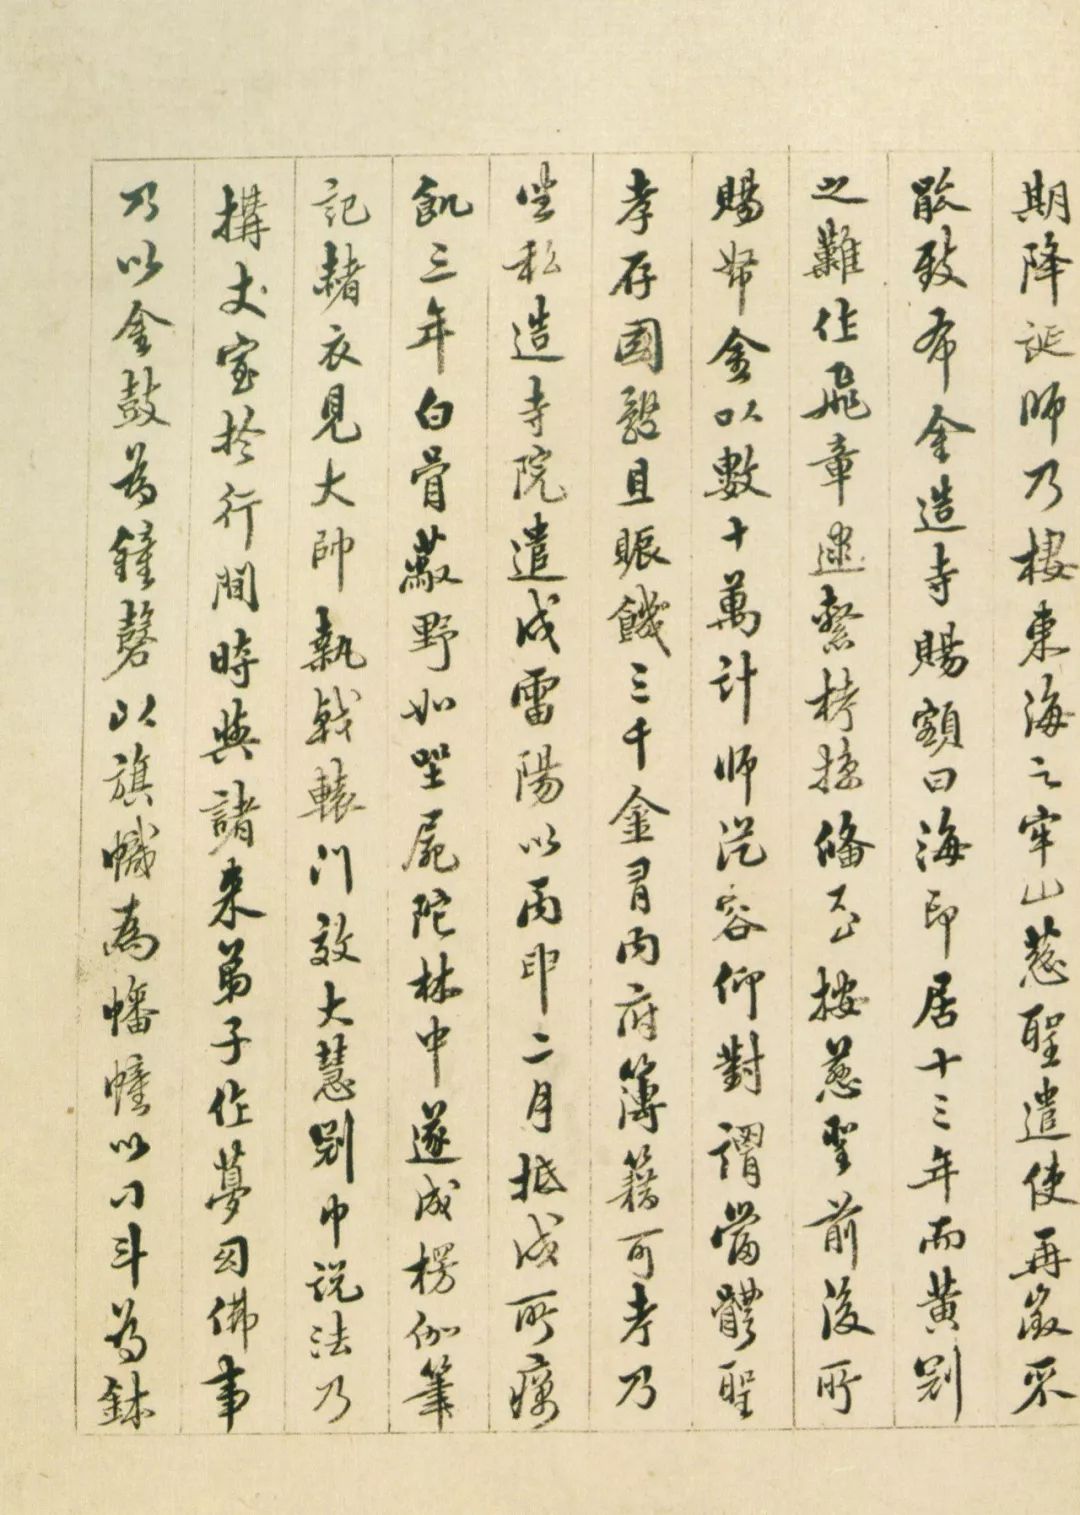 期降誕師乃棲東海之牢山慈聖遣使再徵不
能致布金造寺賜額曰海印居十三年而黄冠
之難作飛章逮繫栲掠備至按慈聖前後所
賜帑金以數十萬計師從容仰對謂當體聖
孝存國體且賑饑三千金有内府簿籍可考乃
坐私造寺院遣戍雷陽以丙申二月抵戍所癘
飢三年白骨蔽野如坐屍陀林中遂成楞伽筆
記赭衣見大帥執戟轅門效大慧冠巾説法乃
搆丈室於行間時與諸来弟子作夢幻佛事
乃以金鼓為鐘磬以旗幟為幡幢以刁斗為鉢